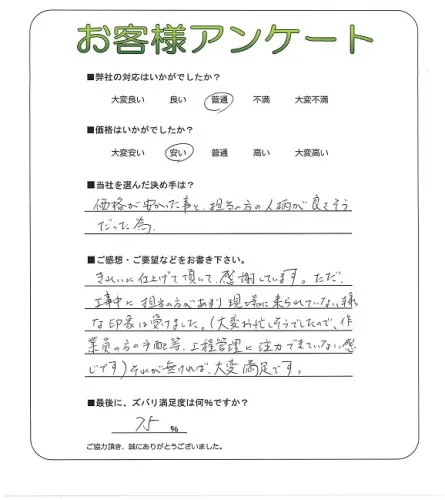 お客様アンケート
■弊社の対応はいかがでしたか？
大変良い 良い 普通 不満 大変不満
■価格はいかがでしたか？
大変安い 安い 普通 高い 大変高い
■当社を選んだ決め手は？
価格が安かった事と、担当の方の人柄が良さそう
だった為。
■ご感想・ご要望などをお書き下さい。
きれいに仕上げて頂いて、感謝しています。ただ、
工事中に担当の方があまり現場に来られていない様
な印象は受けました。(大変お忙しそうでしたので、作
業員の方の手配等、工程管理に注力できていない感
じです)それが無ければ、大変満足です。
■最後に、ズバリ満足度は何%ですか？
75 %
ご協力頂き、誠にありがとうございました。